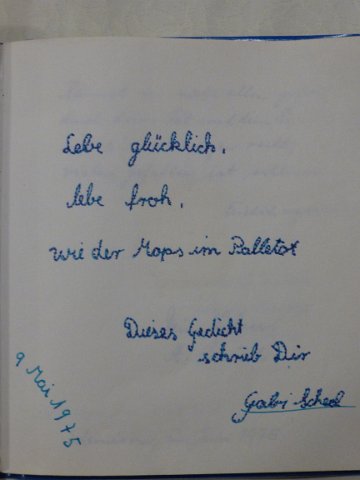 Lebe glücklich,
lebe froh,
wie der Mops im Palletot
Dieses Gedicht
schrieb Dir
Gabi
9 Mai 1975